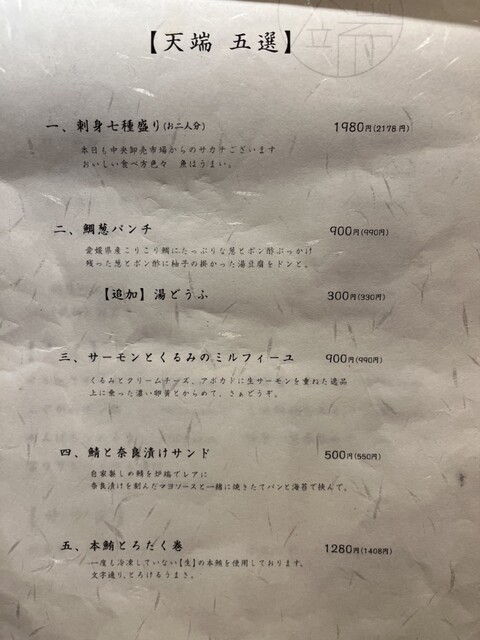 【天端 五選】
一、刺身七種盛り(お二人分) 1980円(2178円)
本日も中央卸売市場からのサカナでございます
おいしい食べ方色々 魚はうまい。
二、鯛葱パンチ 900円(990円)
愛媛県産こりこり鯛にたっぷりな葱とポン酢ぶっかけ
残った葱とポン酢に柚子の掛かった湯豆腐をドンと。
【追加】湯どうふ 300円(330円)
三、サーモンとくるみのミルフィーユ 900円(990円)
くるみとクリームチーズ、アボカドに生サーモンを重ねた逸品
上に乗った濃い卵黄とからめて、さぁどうぞ。
四、鯖と奈良漬けサンド 500円(550円)
自家製しめ鯖を炉端でレアに
奈良漬けを刻んだマヨソースと一緒に焼きたてパンと海苔で挟んで。
五、本鮪とろたく巻 1280円(1408円)
一度も冷凍していない【生】の本鮪を使用しております。
文字通り、とろけるうまさ。